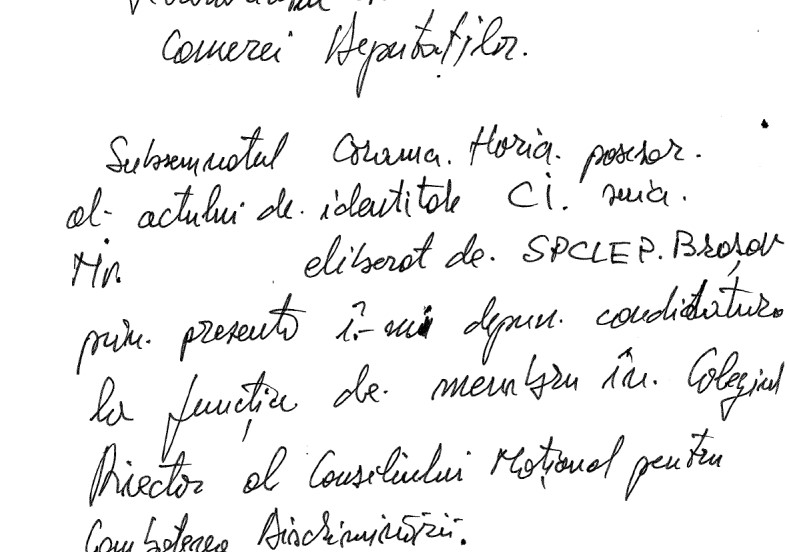 Camerei Deputaților.
Subsemnatul Corama. Horia. posesor.
al actului de. identitate CI. seria.
Nr. eliberat de. SPCLEP. Brașov
prin. prezenta î-mi depun. candidatura
la funcția de. membru în. Colegiul
Director al Consiliului Național pentru
Combaterea Discriminării.